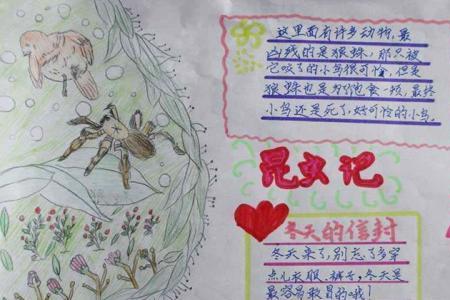 这里面有许多动物,最
凶残的是狼蛛,那只被
它咬了的小鸟很可怜,但是
狼蛛也是为了他食一顿,最终
小鸟还是死了,好可怜的小鸟。
昆虫记
冬天的信封
冬天来了,别忘了多穿
点儿衣服、裤子,冬天是
最容易敢冒的哦!